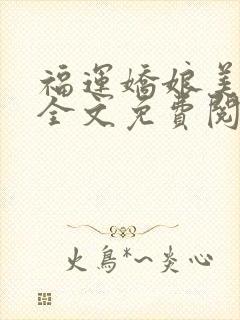 福運嬌娘美
全文免費閱
火鳥*~炎心